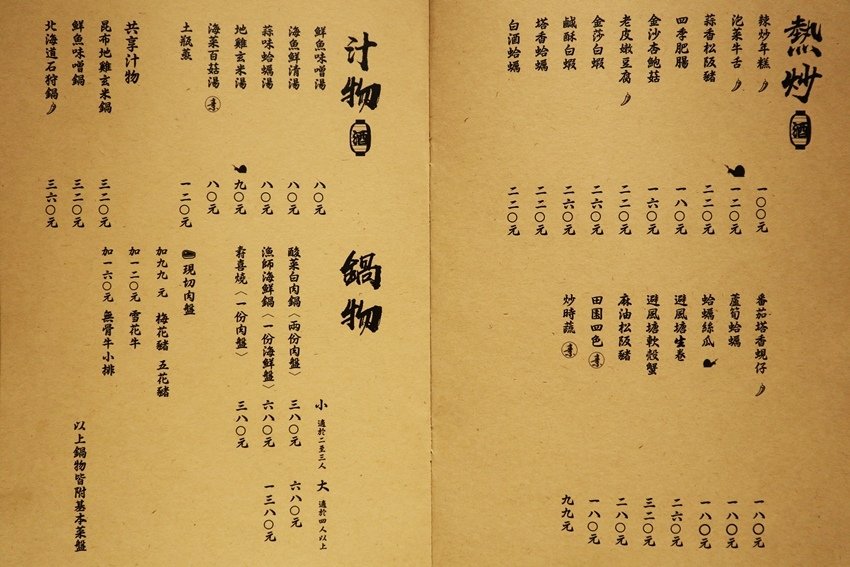 熱炒 酒
辣炒年糕 一〇〇元
泡菜牛舌 一二〇元
蒜香松阪豬 二二〇元
四季肥腸 一八〇元
金沙杏鮑菇 一六〇元
老皮嫩豆腐 二二〇元
金莎白蝦 二六〇元
鹹酥白蝦 二六〇元
塔香蛤蠣 二二〇元
白酒蛤蠣 二二〇元
番茄塔香蜆仔 一八〇元
蘆筍蛤蠣 一八〇元
蛤蠣絲瓜 一八〇元
避風塘生卷 二六〇元
避風塘軟殼蟹 三二〇元
麻油松阪豬 二八〇元
田園四色 素 一八〇元
炒時蔬 素 九九元
汁物 酒
鮮魚味噌湯 八〇元
海魚鮮清湯 八〇元
蒜味蛤蠣湯 八〇元
地雞玄米湯 九〇元
海菜百菇湯 素 八〇元
土瓶蒸 一二〇元
共享汁物
昆布地雞玄米鍋 三二〇元
鮮魚味噌鍋 三二〇元
北海道石狩鍋 三六〇元
鍋物
小 適於二至三人 大 適於四人以上
酸菜白肉鍋〈兩份肉盤〉 三八〇元 六八〇元
漁師海鮮鍋〈一份海鮮盤〉 六八〇元 一三八〇元
壽喜燒〈一份肉盤〉 三八〇元
現切肉盤
加九九元 梅花豬 五花豬
加一二〇元 雪花牛
加一六〇元 無骨牛小排
以上鍋物皆附基本菜盤